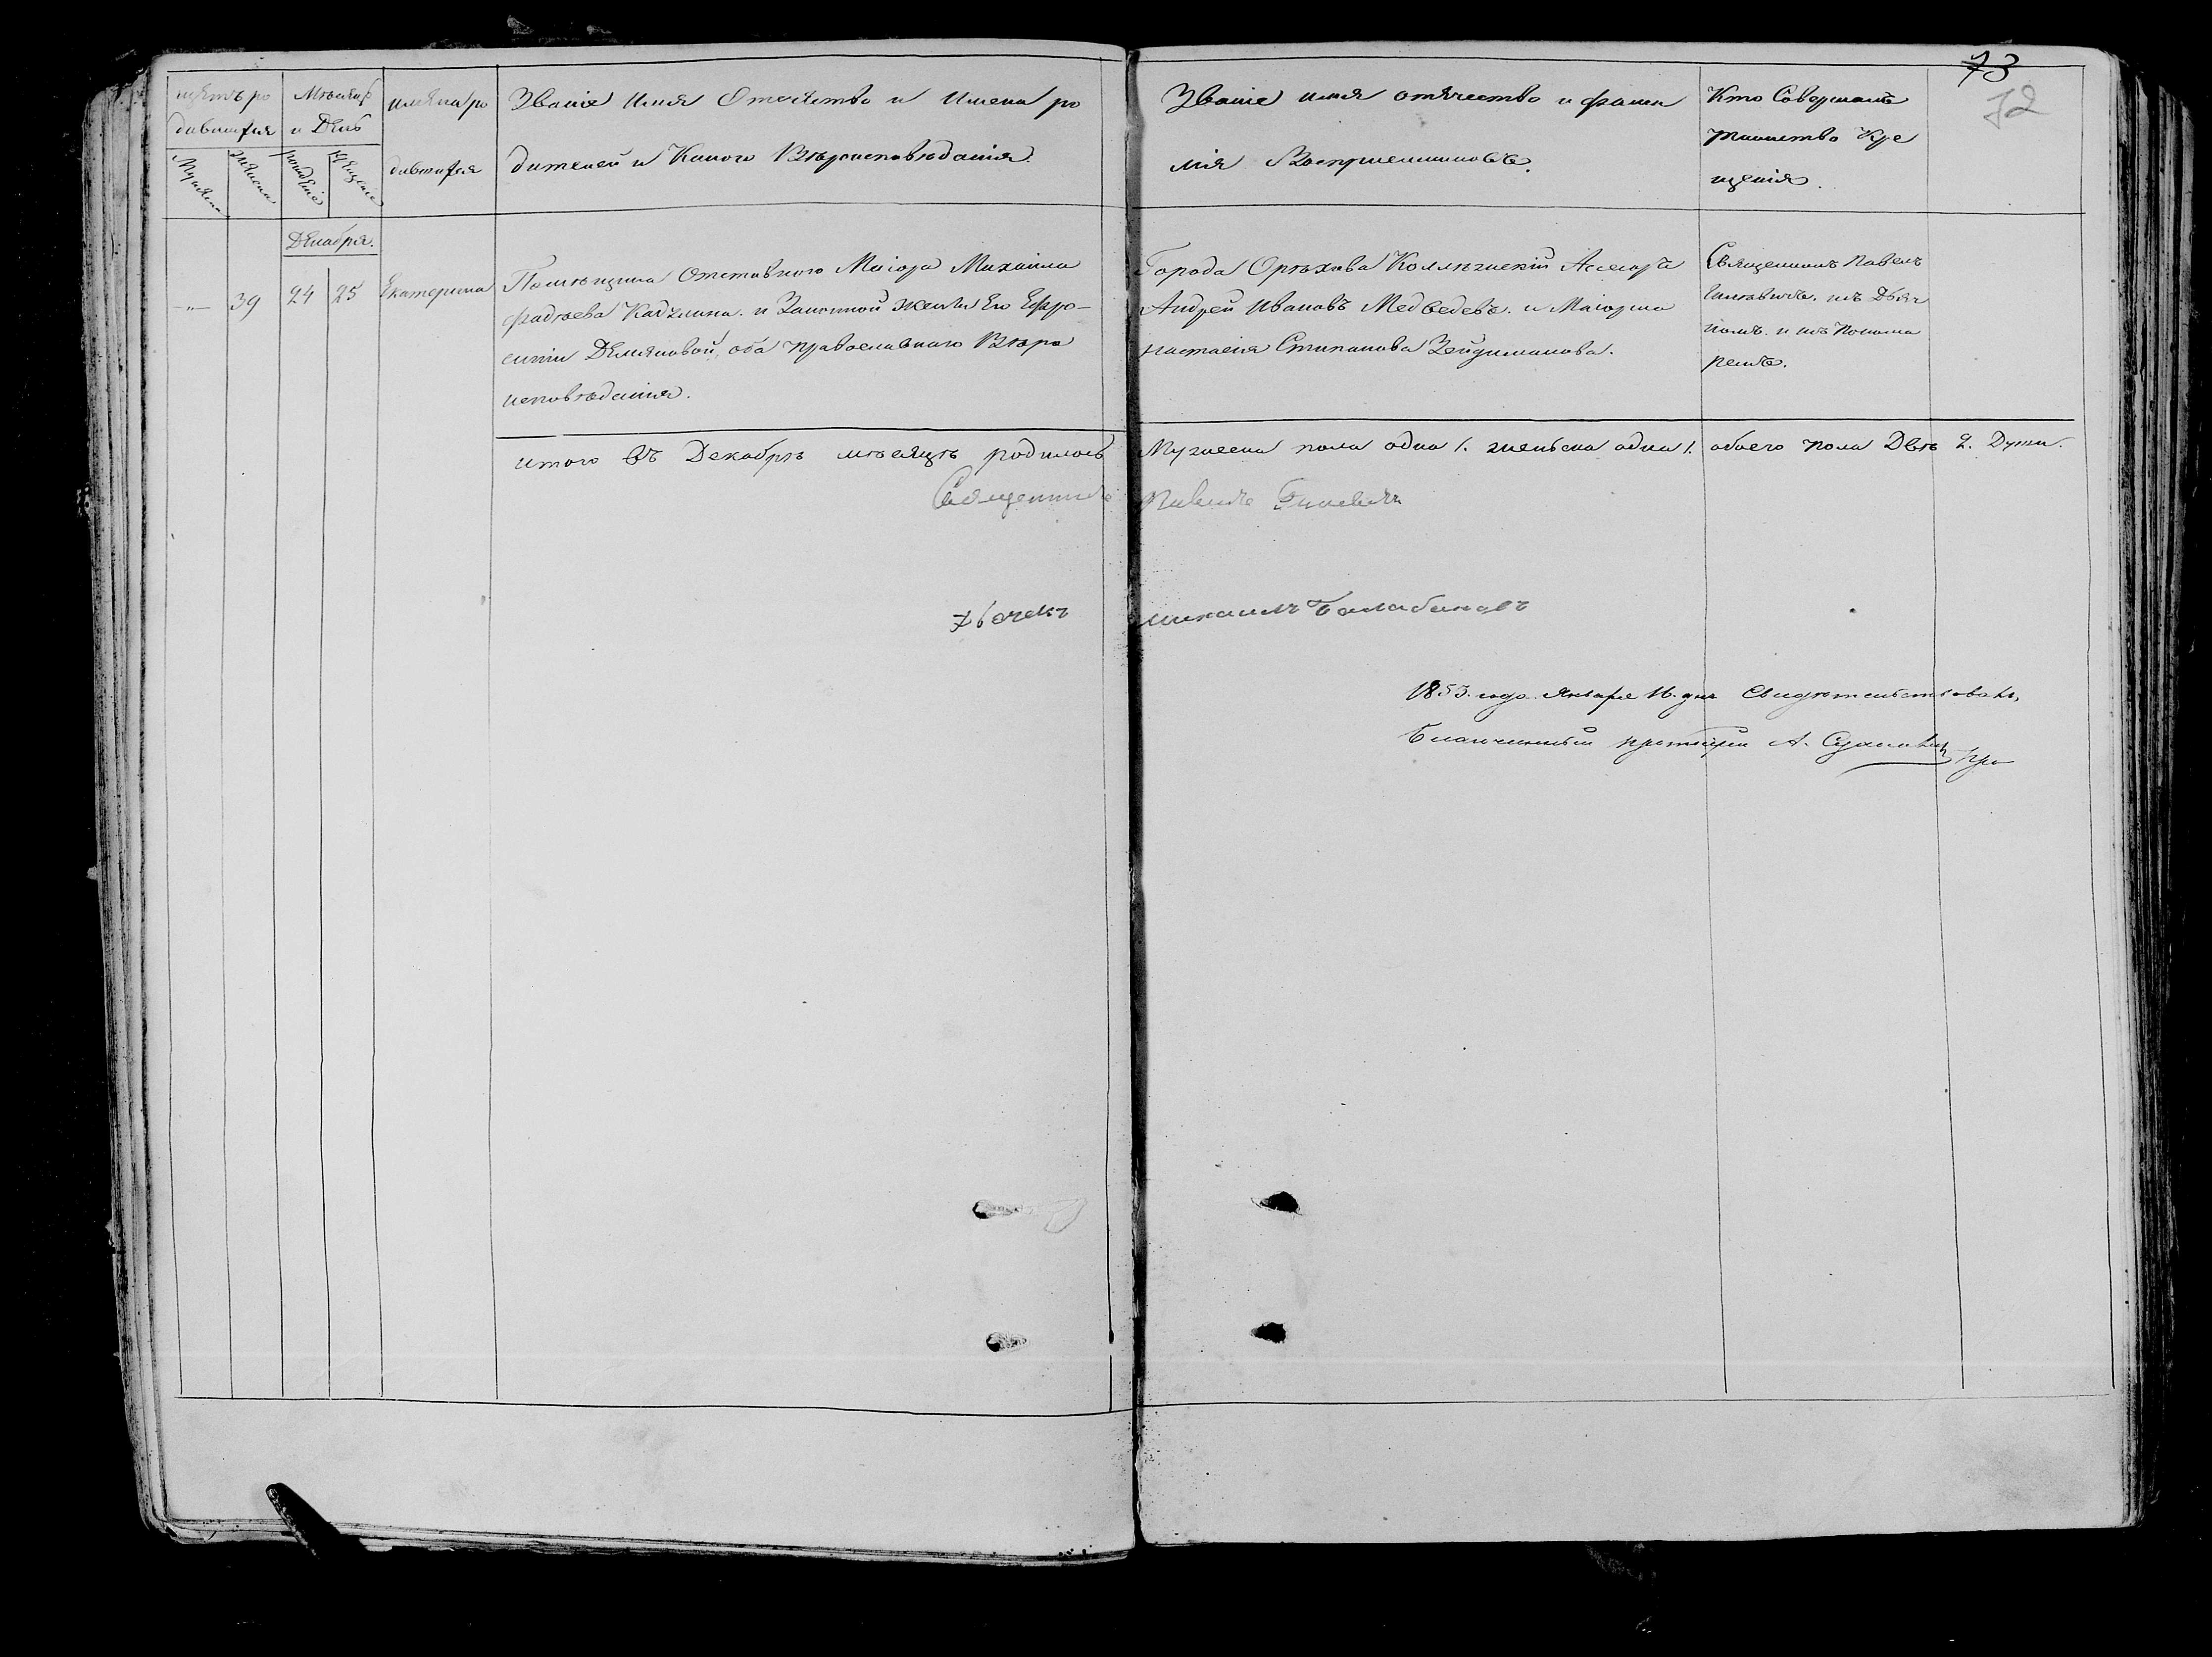 73
72
щетъ ро
дившихся
Мужеска
Женска
Месяцъ
и День
рождение
крещение
имяна ро
дившихся
Званіе Имя Отечетво и Имена ро
дителей и Какого Вѣроисповѣданія.
Званіе имя отечество и фами
лія Воспріемниковъ.
Кто Совершалъ
таинство Кре
щенія.
Декабря.
-"- 39 24 25 Екатерина
Помѣщика Отставного Маіора Михаила
Фадѣева и Законной жены Его Ефро-
синіи Демяновой, оба православнаго Вѣро
исповѣданія.
Города Орѣхова Коллѣжскій Асесоръ
Андрей Ивановъ Медведевъ. и Маіорша
Настасія Стипанова
Священникъ Павелъ
съ Дьяч
комъ. и съ Понома
ремъ.
итого въ Декабрѣ мѣсяцѣ родилось Мужеска пола одна 1. женьска одна 1. обоего пола Двѣ 2. Души.
Священникъ Павелъ
Дьячекъ Михаилъ Балабановъ
1853. года Января 16. дня Свидѣтельствовалъ,
Благочинный протоіерей А.